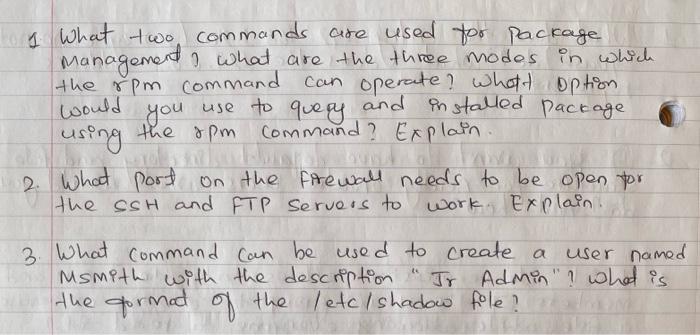 1 What two commands are used for package
Management? what are the three modes in which
the rpm command can operate? what option
would you use to query and installed package
using the rpm command? Explain.
2. What port on the firewall needs to be open for
the SSH and FTP servers to work. Explain.
3. What command can be used to create a user named
Msmith with the description "Jr Admin"? what is
the format of the /etc/shadow file?